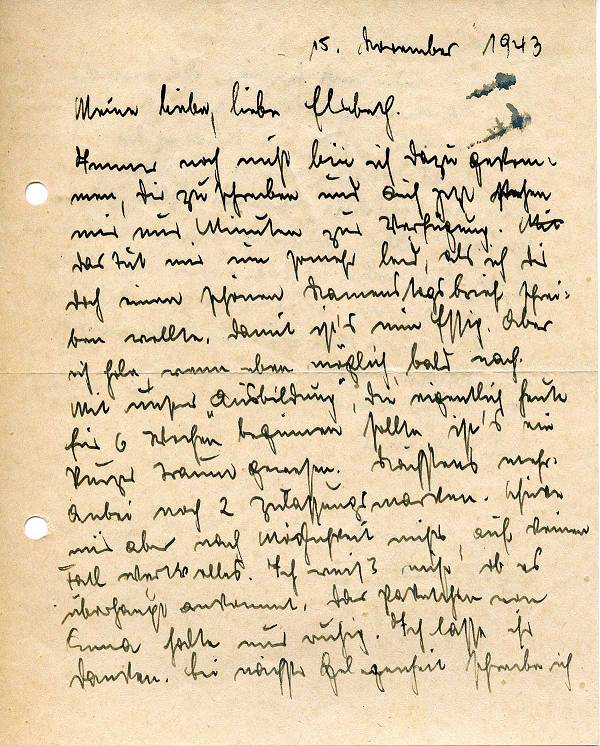 15. November 1943
Meine liebe, liebe Elsbeth.
Immer noch nicht bin ich dazu gekom-
men, dir zu schreiben und auch jetzt stehen
mir nur Minuten zur Verfügung.
Das tut mir um so mehr leid, als ich dir
doch einen schönen Namenstagsbrief schrei-
ben wollte. Damit ist's nun Essig. Aber
ich hole, wenn eben möglich, bald nach.
Mit unser "Ausbildung", die eigentlich heute
für 6 Wochen beginnen sollte, ist's ein
kurzer Traum gewesen. Nächstens mehr.
Anbei noch 2 Zulassungsmarken. Schicke
mir aber nach Möglichkeit nichts, auf keinen
Fall wertvolles. Ich weiß nicht, ob es
überhaupt ankommt. Das Päckchen von
Emma halte nur ruhig. Ich lasse ihr
danken. Bei nächster Gelegenheit schreibe ich